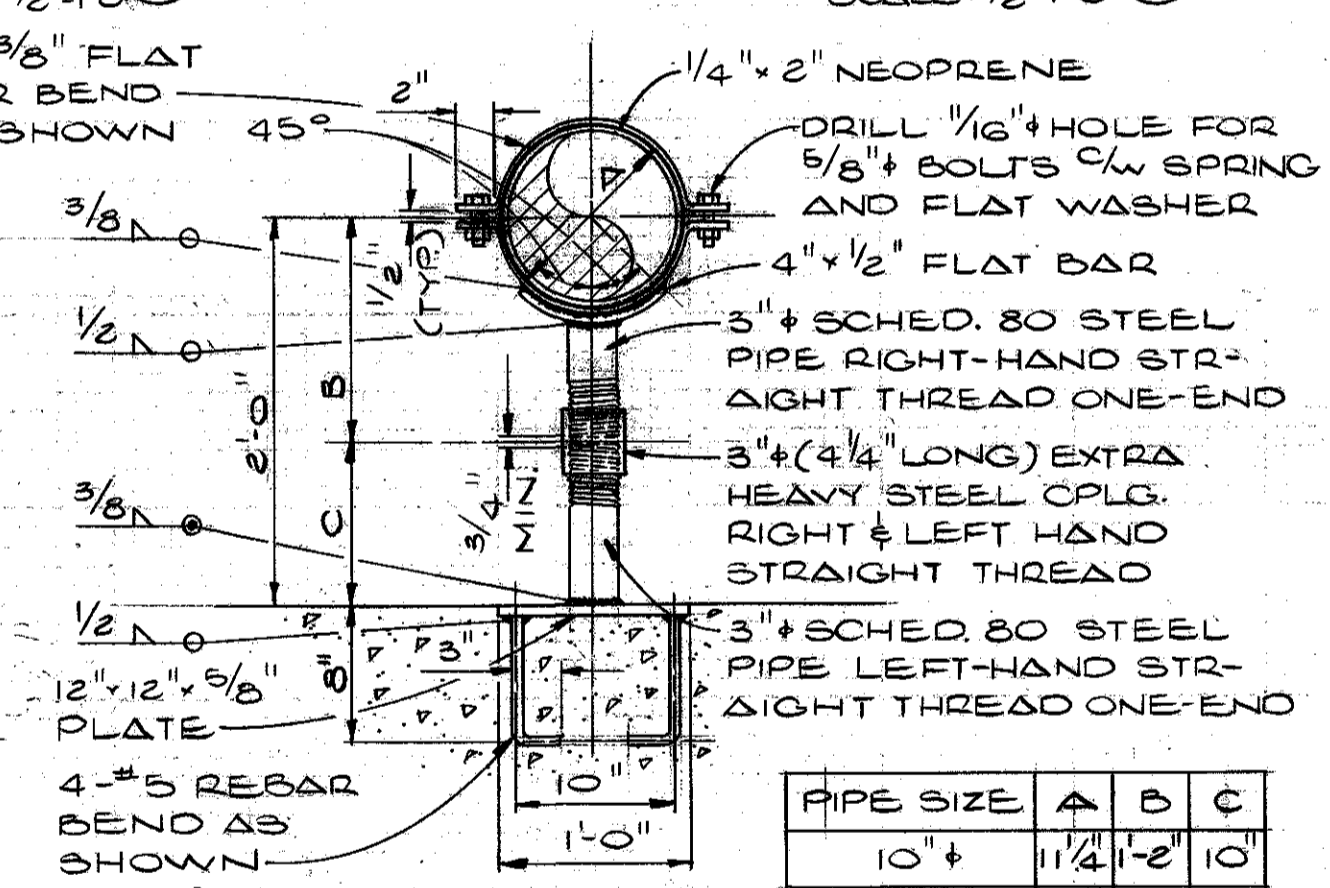 3/8" FLAT
BEND
SHOWN
45°
2"
1/4" x 2" NEOPRENE
DRILL 11/16"ϕ HOLE FOR
5/8"ϕ BOLTS C/W SPRING
AND FLAT WASHER
4" x 1/2" FLAT BAR
3"ϕ SCHED. 80 STEEL
PIPE RIGHT-HAND STR-
AIGHT THREAD ONE-END
3"ϕ (4 1/4" LONG) EXTRA
HEAVY STEEL CPLG.
RIGHT & LEFT HAND
STRAIGHT THREAD
3"ϕ SCHED. 80 STEEL
PIPE LEFT-HAND STR-
AIGHT THREAD ONE-END
3/8
1/2
3/8
1/2
1/2"
(TYP.)
2'-0"
B
C
3/4"
MIN.
8"
3"
A
12" x 12" x 5/8"
PLATE
4-#5 REBAR
BEND AS
SHOWN
10"
1'-0"
PIPE SIZE A B C
10"ϕ 11 1/4" 1'-2" 10"